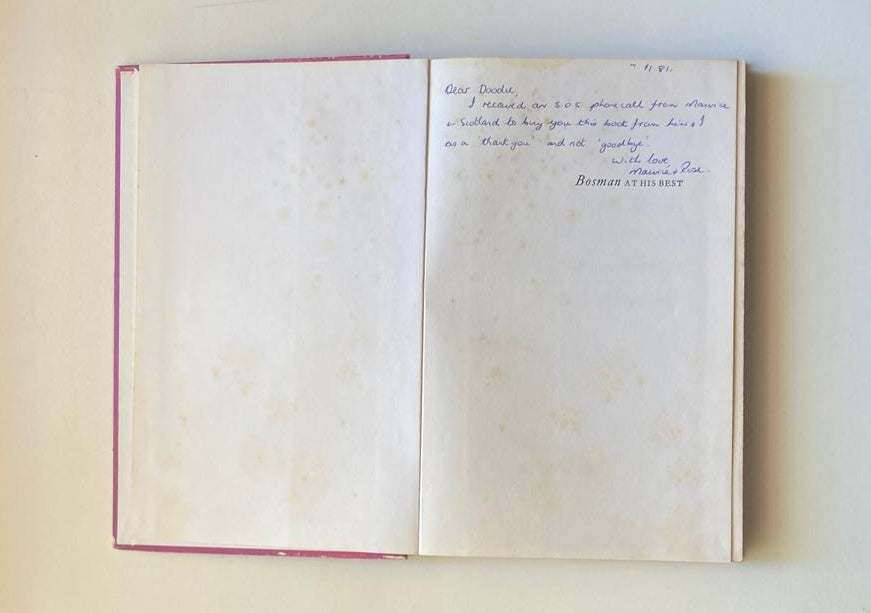 7.11.81.
Dear Doodie,
I received an S.O.S. phonecall from Maurice
in Scotland to buy you this book from him & I
as a 'thankyou' and not 'goodbye'.
With love,
Maurice & Rose.
Bosman AT HIS BEST